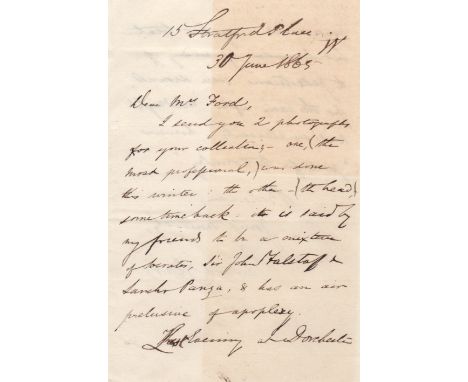 15 Stratford Place
W
30 June 1865
Dear Mrs Ford,
I send you 2 photographs
for your collection; - one, (the
most professional,) was done
this winter: the other - (the head)
some time back. It is said by
my friends to be a mixture
of Socrates, Sir John Falstaff &
Sancho Panza, & has an air
prelusive of apoplexy.
Evening at Dorchester